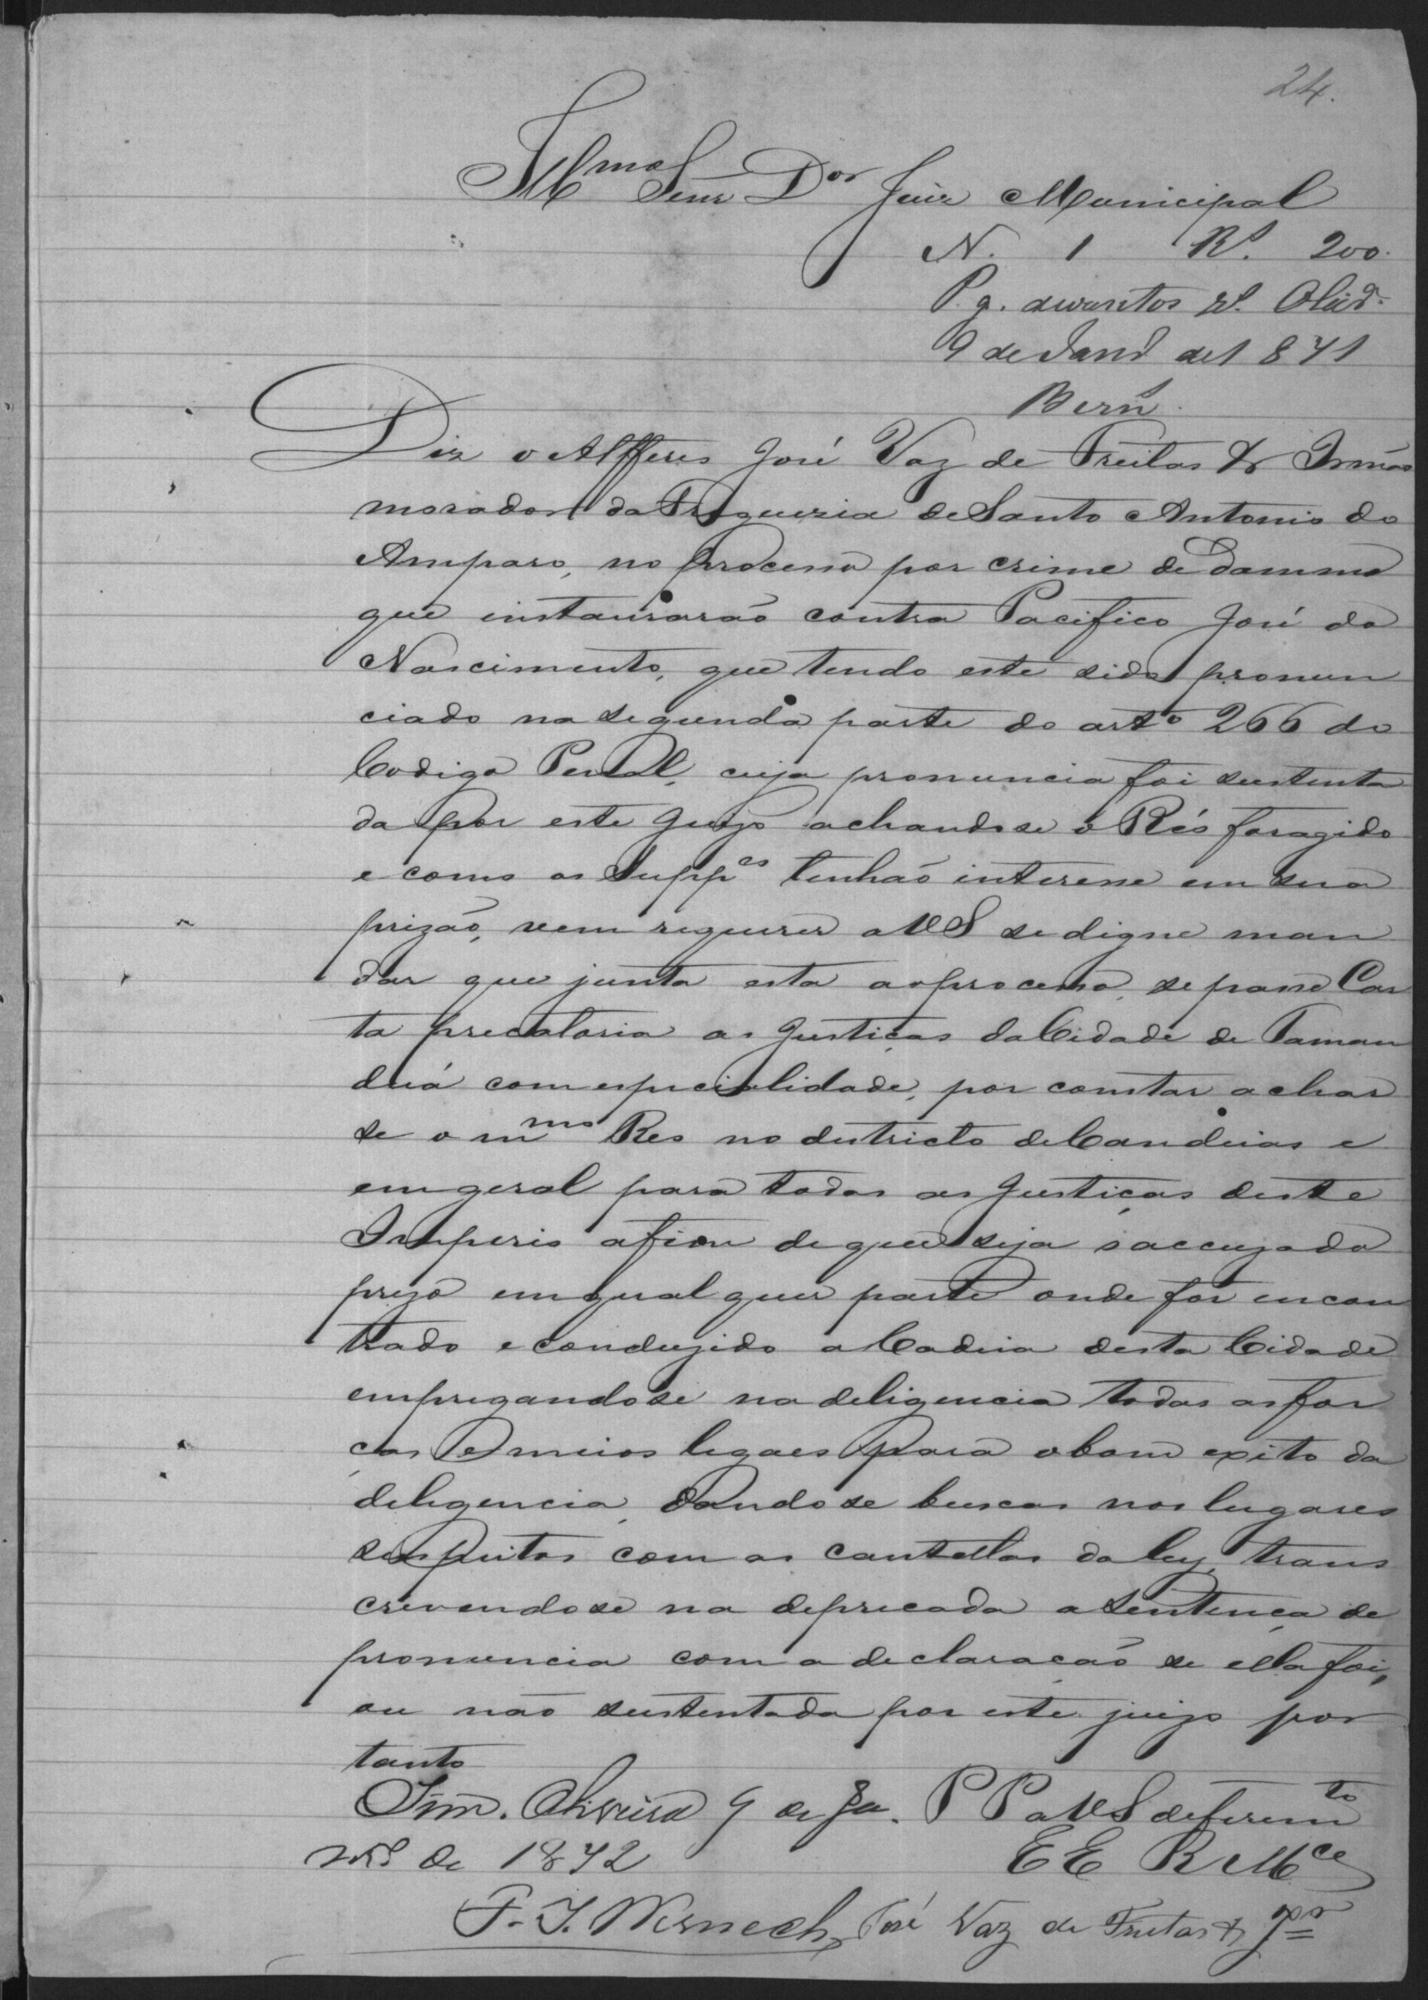 24.
Illmo Senr Dor Juiz Municipal
N. 1 Rs. 200.
P. g. duzentos rs. Olivª.
9 de Janrº de 1871
Bern
Diz o Alfferes José Vaz de Freitas & Irmão
morador da Freguezia de Santo Antonio do
Amparo, no processo por crime de damno
que instaurarão contra Pacifico José do
Nascimento, que tendo este sido pronun
ciado na segunda parte do artº 266 do
Codigo Penal, cuja pronuncia foi sustenta
da por este Juizo achandose o Réo foragido
e como os Suppes tenhão interesse em sua
prizão, vem requerer a VS se digne man
dar que junta esta ao processo, se passe Car
ta precatoria as Justiças da Cidade de Taman
duá com especialidade, por constar achar
se o mmo Reo no destricto de Candeias e
em geral para todas as Justiças deste
Imperio afim de que seja o accuzado
prezo em qual quer parte onde for encon
trado e conduzido a Cadeia desta Cidade
empregandose na deligencia todas as for
ças e meios legaes para o bom exito da
deligencia, dandose buscas nos lugares
suspeitos com as cautellas da ley, trans
crevendose na deprecada a sentença de
pronuncia com a declaração se ella foi,
ou não sustentada por este juizo por
tanto
Sim. Oliveira 9 de Ja. P P a VS deferemto
nrº de 1872 E E R Mce
F. J. Wernech José Vaz de Freitas & Jor